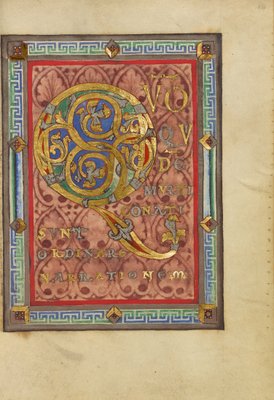 QUO
QUI
DE
MULTI
CONATI
SUNT
ORDINARE
NARRATIONEM